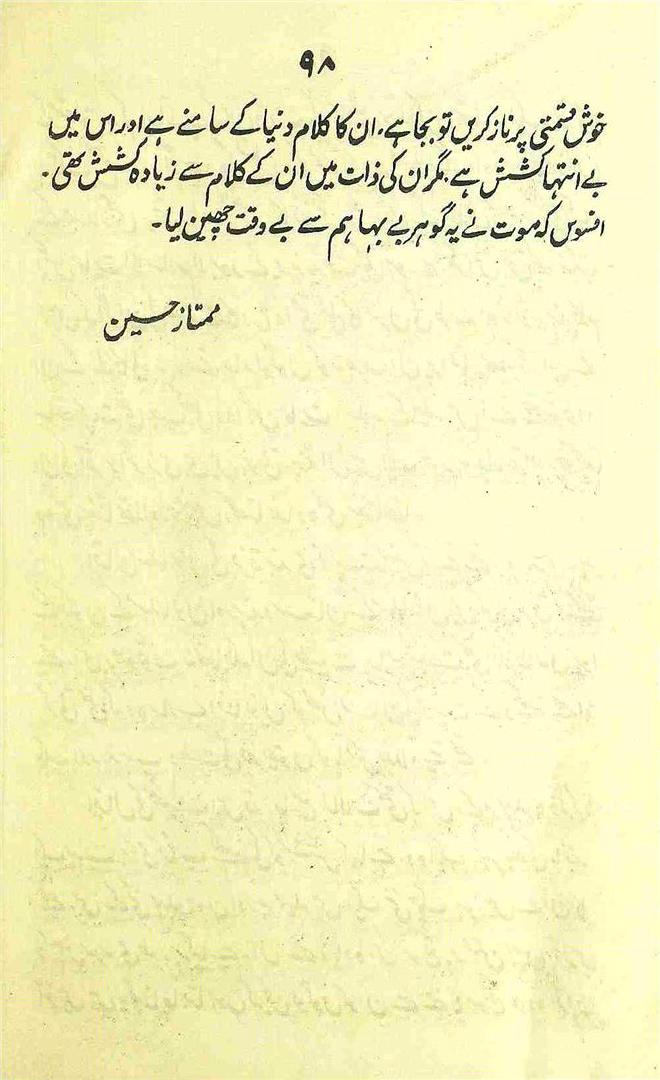 ۹۸
خوش قسمتی پر ناز کریں تو بجا ہے۔ ان کا کلام دنیا کے سامنے ہے اور اس میں
بے انتہا کشش ہے۔ مگر ان کی ذات میں ان کے کلام سے زیادہ کشش تھی۔
افسوس کہ موت نے یہ گوہر بے بہا ہم سے بے وقت چھین لیا۔
ممتاز حسین